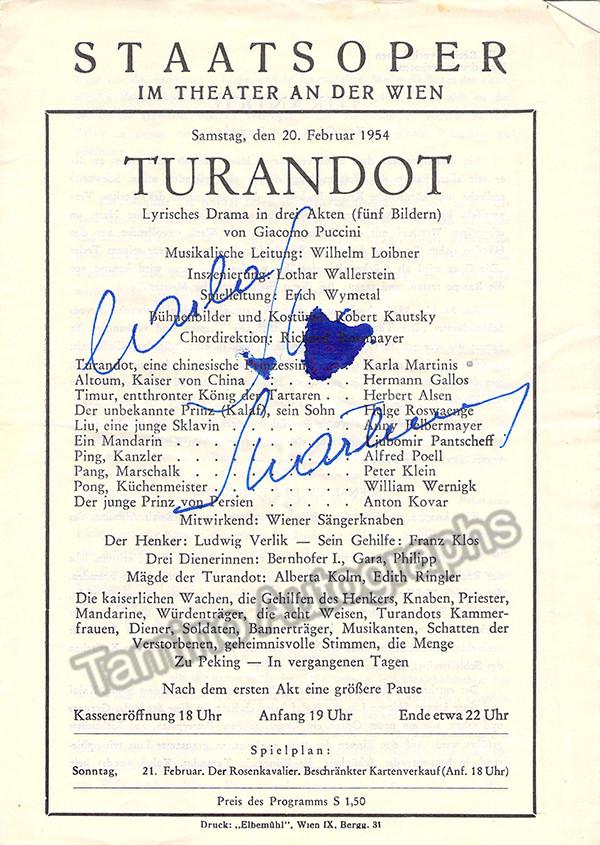 STAATSOPER
IM THEATER AN DER WIEN
Samstag, den 20. Februar 1954
TURANDOT
Lyrisches Drama in drei Akten (fünf Bildern)
von Giacomo Puccini
Musikalische Leitung: Wilhelm Loibner
Inszenierung: Lothar Wallerstein
Spielleitung: Erich Wymetal
Bühnenbilder und Kostüme: Robert Kautsky
Chordirektion: Richard Roßmayer
Turandot, eine chinesische Prinzessin . . . Karla Martinis
Altoum, Kaiser von China . . . . . . Hermann Gallos
Timur, entthronter König der Tartaren . . Herbert Alsen
Der unbekannte Prinz (Kalaf), sein Sohn . Helge Roswaenge
Liu, eine junge Sklavin . . . . . . Anny Felbermayer
Ein Mandarin . . . . . . . . Ljubomir Pantscheff
Ping, Kanzler . . . . . . . . Alfred Poell
Pang, Marschalk . . . . . . . Peter Klein
Pong, Küchenmeister . . . . . . William Wernigk
Der junge Prinz von Persien . . . . . Anton Kovar
Mitwirkend: Wiener Sängerknaben
Der Henker: Ludwig Verlik — Sein Gehilfe: Franz Klos
Drei Dienerinnen: Bernhofer I., Gara, Philipp
Mägde der Turandot: Alberta Kolm, Edith Ringler
Die kaiserlichen Wachen, die Gehilfen des Henkers, Knaben, Priester,
Mandarine, Würdenträger, die acht Weisen, Turandots Kammer-
frauen, Diener, Soldaten, Bannerträger, Musikanten, Schatten der
Verstorbenen, geheimnisvolle Stimmen, die Menge
Zu Peking — In vergangenen Tagen
Nach dem ersten Akt eine größere Pause
Kasseneröffnung 18 Uhr Anfang 19 Uhr Ende etwa 22 Uhr
Spielplan:
Sonntag, 21. Februar. Der Rosenkavalier. Beschränkter Kartenverkauf (Anf. 18 Uhr)
Preis des Programms S 1,50
Druck: „Elbemühl", Wien IX, Bergg. 31
Carla Martinis
Tamino Autographs